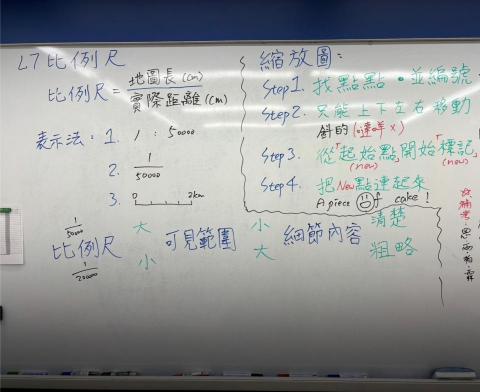 L7 比例尺
比例尺 = 地圖長(cm) / 實際距離(cm)
表示法: 1. 1 : 50000
2. 1/50000
3. 0 2km
1/50000 大 可見範圍 小 細節內容 清楚
比例尺
1/200000 小 大 粗略
縮放圖:
Step1. 找點點。並編號
Step2. 只能上下左右移動
斜的(達咩X)
Step3. 從「起始點」開始「標記」
(new) (new)
Step4. 把New點連起來
A piece of cake!